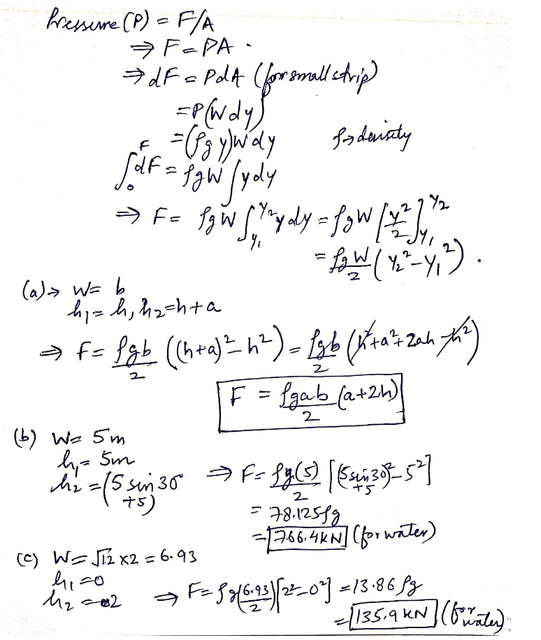 Pressure (P) = F/A
⇒ F = PA .
⇒ dF = P dA (for small strip)
= P(W dy)
= (ρg y) W dy   ρ → density
∫₀^F dF = ρgW ∫ y dy
⇒ F = ρgW ∫_{y₁}^{y₂} y dy = ρgW [y²/2]_{y₁}^{y₂}
= ρgW/2 (y₂² - y₁²) .
(a) → W = b
h₁ = h, h₂ = h + a
⇒ F = ρgb/2 ((h+a)² - h²) = ρgb/2 (h² + a² + 2ah - h²)
F = ρgab/2 (a + 2h)
(b) W = 5m
h₁ = 5m
h₂ = (5 sin 30° + 5) ⇒ F = ρg(5)/2 [(5 sin 30° + 5)² - 5²]
= 78.125 ρg
= 766.4 kN (for water)
(c) W = √12 × 2 = 6.93
h₁ = 0
h₂ = 2 ⇒ F = ρg(6.93/2)[2² - 0²] = 13.86 ρg
= 135.9 kN (for water)